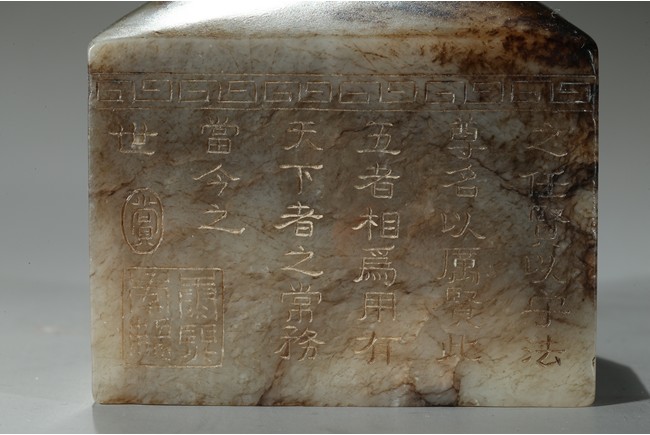 之任賢以守法
尊名以厲賢此
五者相爲用有
天下者之常務
當今之
世
賞